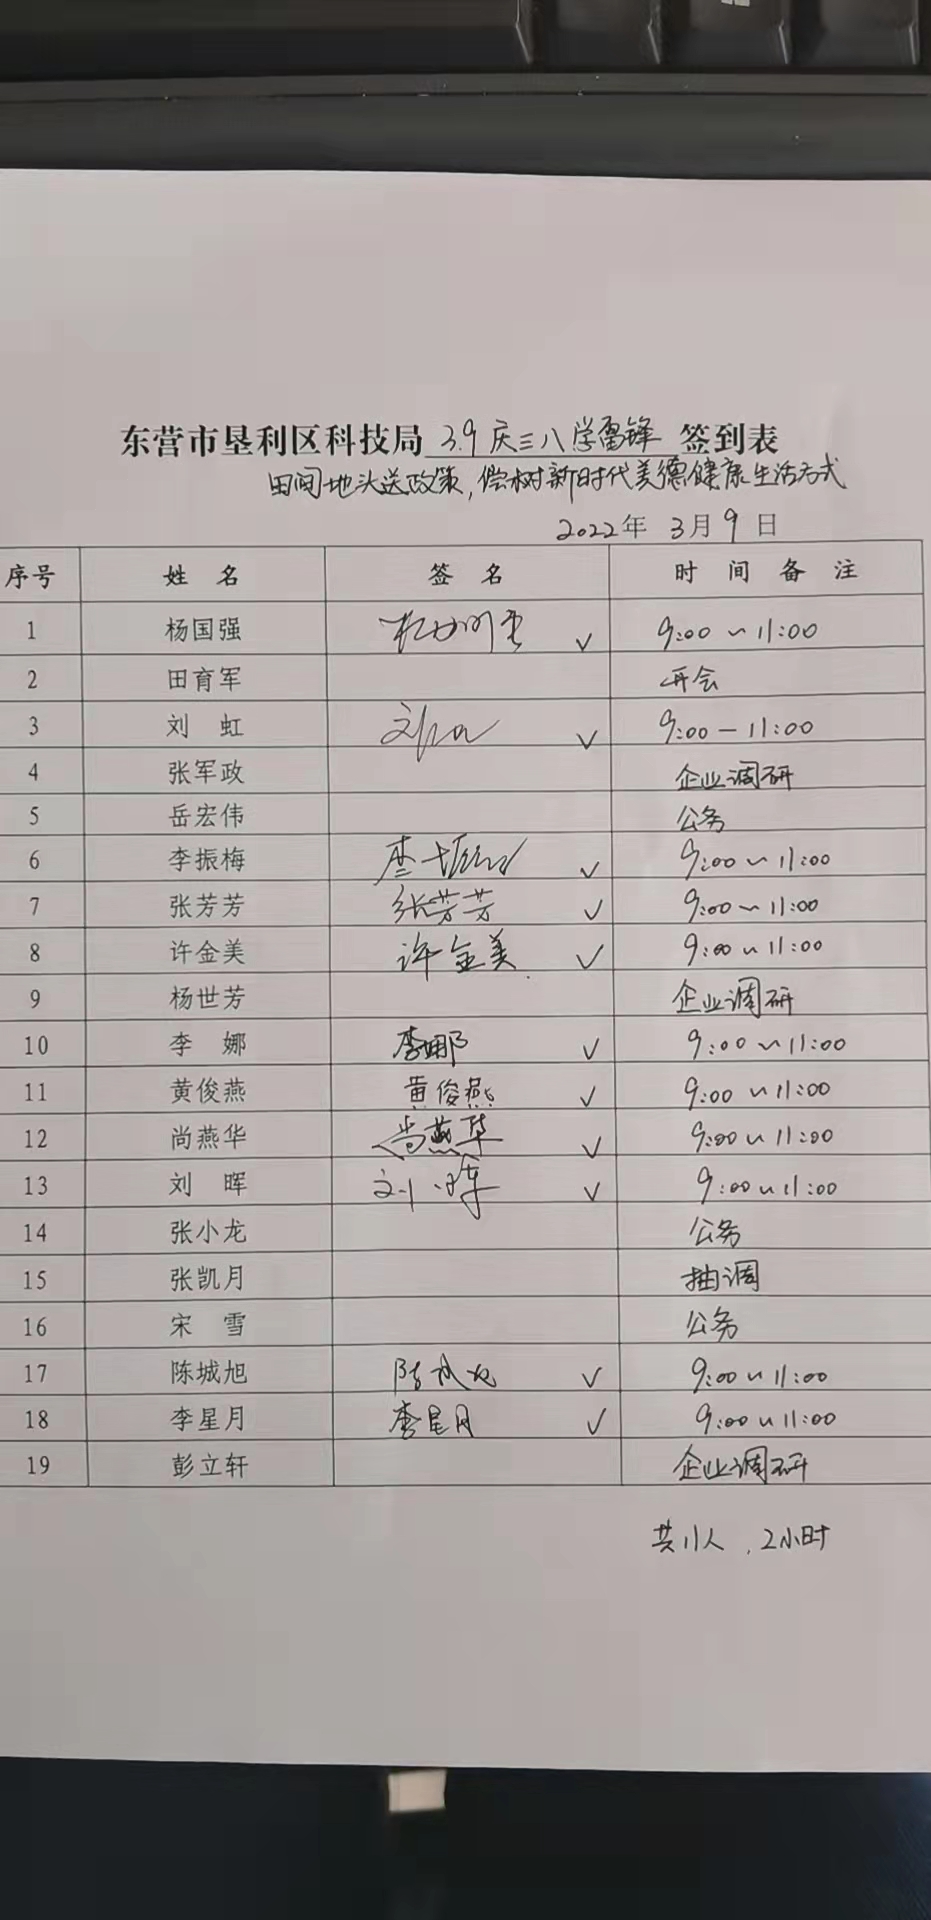 东营市垦利区科技局 3.9庆三八学雷锋 签到表
田间地头送政策,偿树新时代美德健康生活方式
2022年 3月 9日
序号 姓 名 签 名 时 间 备 注
1 杨国强 ✓ 9:00~11:00
2 田育军 开会
3 刘 虹 ✓ 9:00-11:00
4 张军政 企业调研
5 岳宏伟 公务
6 李振梅 李振梅 ✓ 9:00~11:00
7 张芳芳 张芳芳 ✓ 9:00~11:00
8 许金美 许金美 ✓ 9:00~11:00
9 杨世芳 企业调研
10 李 娜 李娜 ✓ 9:00~11:00
11 黄俊燕 黄俊燕 ✓ 9:00~11:00
12 尚燕华 尚燕华 ✓ 9:00~11:00
13 刘 晖 刘晖 ✓ 9:00~11:00
14 张小龙 公务
15 张凯月 抽调
16 宋 雪 公务
17 陈城旭 陈城旭 ✓ 9:00~11:00
18 李星月 李星月 ✓ 9:00~11:00
19 彭立轩 企业调研
共11人,2小时